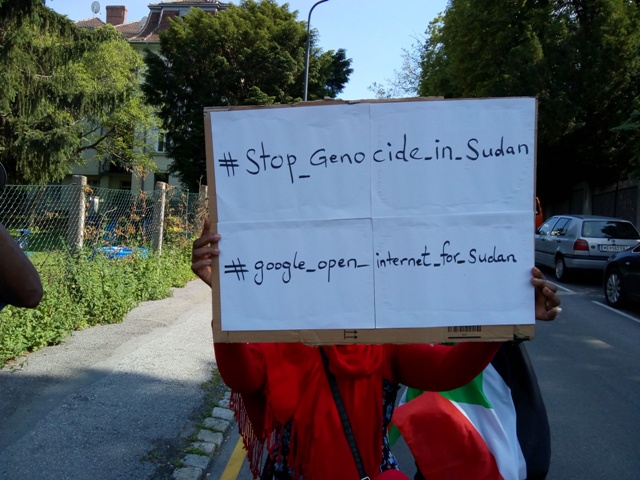 #Stop_Genocide_in_Sudan
#google_open_internet_for_sudan